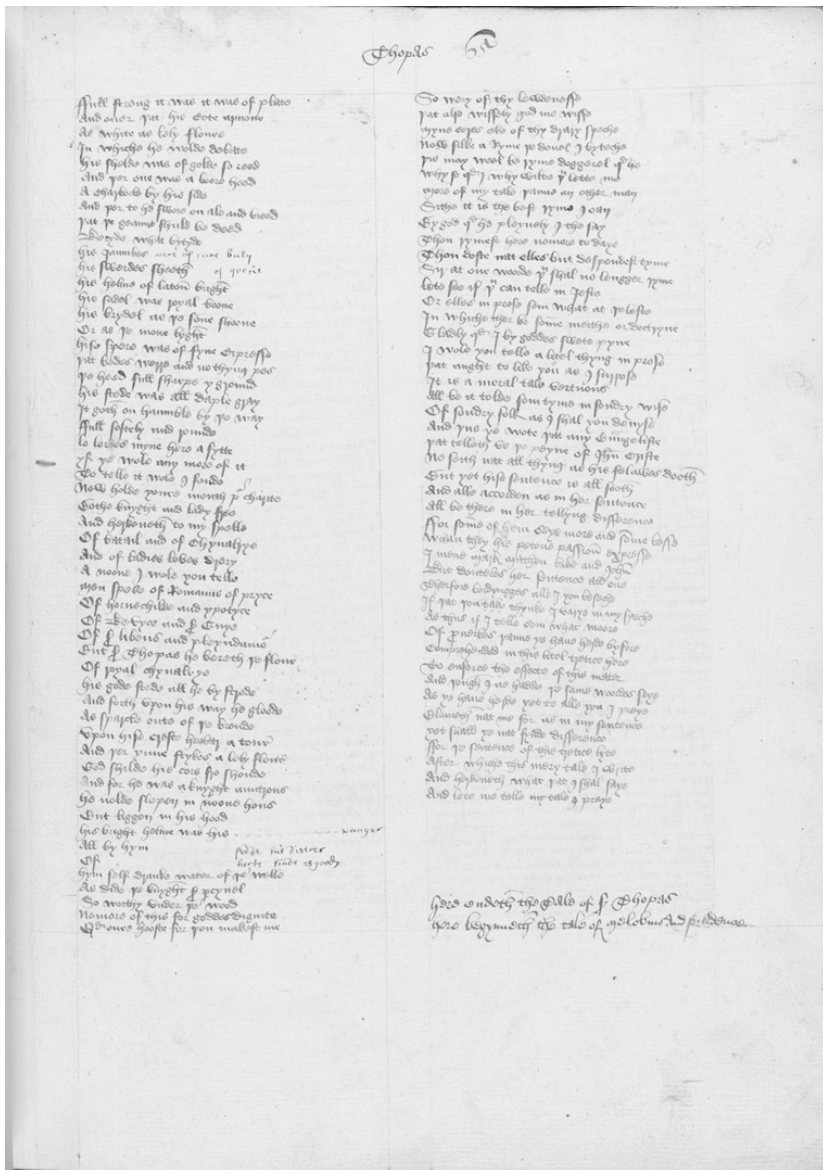 Thopas
Full strong it was it was of plate
And ouer þat his Cote armore
As white as lely floure
In whiche he wolde debate
his shelde was of golde so reed
And þer one was a boore heed
A Charbocle by his side
And þer to he swore on ale and breed
þat þe geaunt shulde be deed
Betyde what bytyde
his Jaumbes were of cure buly
his swerdes sheeth of yverie
his helme of laton bright
his sadel was royal boone
his brydel as þe sone shoone
Or as þe mone lyght
hise spere was of fyne Cipresse
þat bodes werre and no thyng pees
þe heed full sharpe y grounde
his stede was all daple gray
It goth an haumble by þe way
Full softely and rounde
lo lordes myne here a fytte
yf ye wole any more of it
To telle it wole I fonde
Now holde youre mouth pr charite
Bothe knyght and lady free
And herkeneth to my spelle
Of batail and of Chyualrye
And of ladies loues drery
A noone I wole you telle
Men speke of Romauns of pryce
Of hornchilde and ypotyce
Of Beuyce and sr Guye
Of sr libeus and pleyndamor
But sr Thopas he bereth þe flour
Of royal chyualrye
his gode stede all he by strode
And forth vpon his way he gloode
As sparcle oute of þe bronde
Vpon hise creste he bar a tour
And þer ynne stykes a lely flour
God shilde his cors fro shonde
And for he was a knyght auntrous
he nolde slepen in noone hous
But liggen in his hood
his bright helme was his wanger
All by hym
Of
hym self dranke water of þe welle
As dide þe knyght sr percyuel
So worthy vnder þe weed
Nomore of this for goddes dignite
Qd oure hooste for you makest me
So wery of thy lewdenesse
þat also wissely god me blisse
Myne eeres ake of thy drasty speche
Now silke a Ryme þe deuel I byteche
þis may weel be ryme doggerel qd he
Why so qd I why wilte þu lette me
more of my tale þanne an other man
Sithe it is the best ryme I can
By god qd he pleynely I the say
Thou rymest here nomore to daye
Thou doste nat elles but despendest tyme
Sir at one woorde þu shal no lengger ryme
lete see if þu can telle in Jeste
Or elles in prose som what at þe leste
In whiche ther be some merthe or doctryne
Gladly qd I by goddes swete pyne
I wole you telle a litel thyng in prose
þat aught to like you as I suppose
It is a moral tale vertuous
All be it tolde som tyme in sondry wise
Of sondry folk as I shal you deuyse
And þus ye wote þat any Euungeliste
þat telleth vs þe peyne of Jhu Criste
Ne seith nat all thyng as his felawes dooth
But yet hise sentence is all sooth
And alle accorden as in her sentence
All be there in her tellyng difference
For some of hem seye more and some lesse
Whan they his petous passion expresse
I mene mark mathew luke and John
But douteles her sentence all one
Therfore lordynges alle I you beseche
If þat you thynke I varye in my speche
As thus if I telle som what moore
Of prouerbes þanne ye haue herde byfore
Comprehended in this litel tretice here
To enforce the effecte of this mater
And þough I ne hadde þe same wordes seye
As ye haue herde yet to alle you I preye
Blameth nat me for as in my sentence
yet shall ye nat fynde difference
For þe sentence of this tretice lyte
After whiche this mery tale I write
And herkeneth what þat I shal saye
And lete me telle my tale I praye
Here endeth the Tale of sr Thopas
here begynneth the tale of Melebeus And prudence